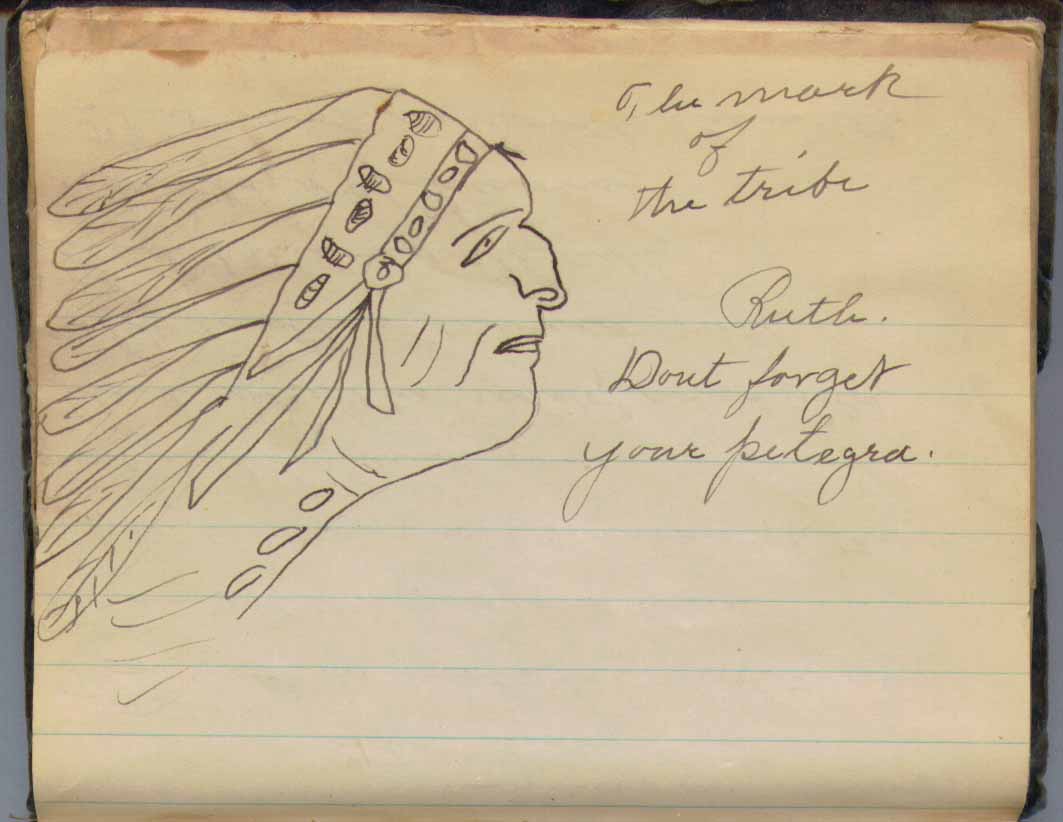 The mark
of
the tribe
Ruth.
Dont forget
your petegra.